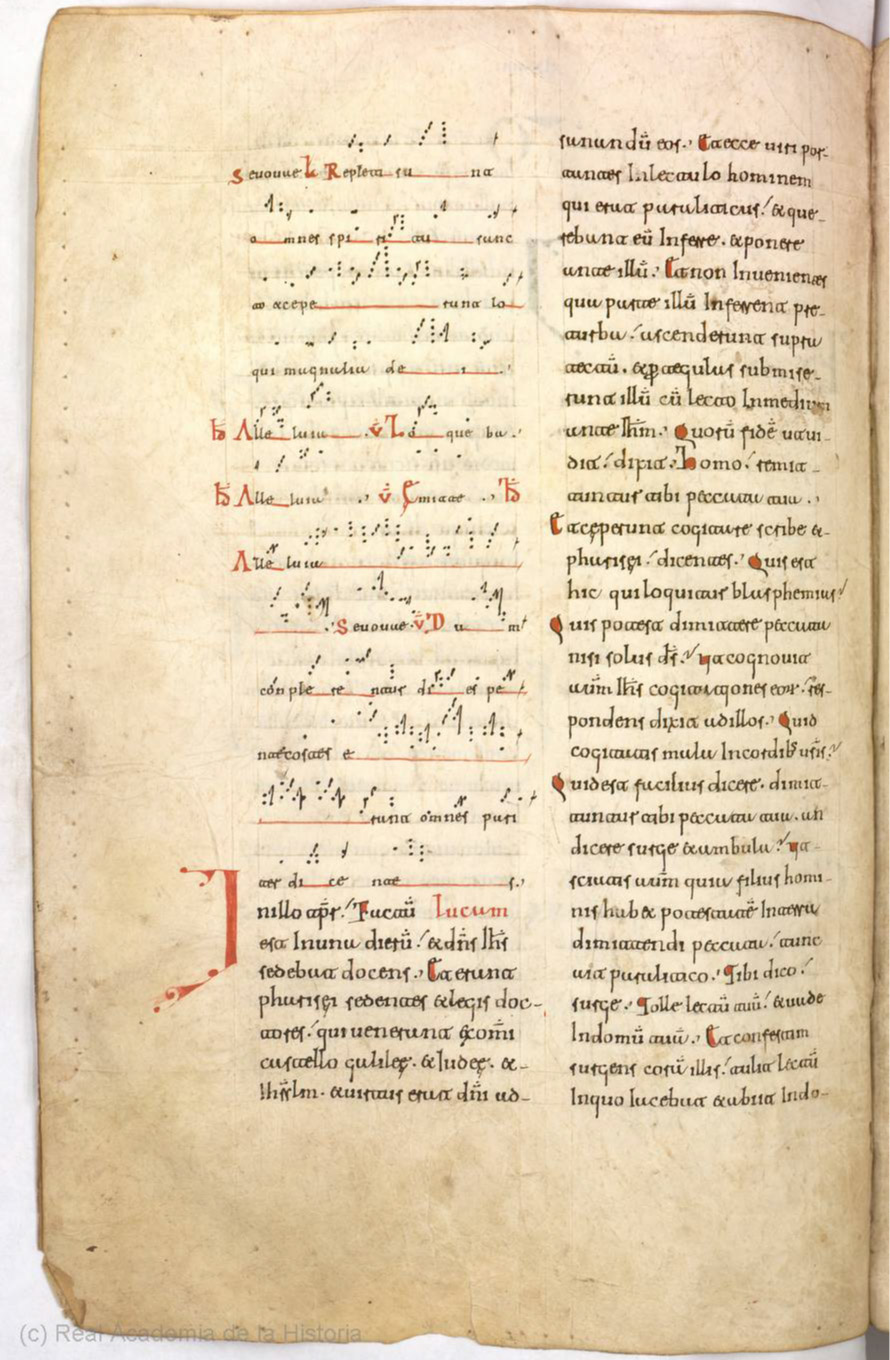 Seuouae R Repleti su na
omnes spi ri tu sunc
to et cepe runt lo
qui magnalia de i.
Alle luia V Lo que ba.
Alle luia V Emitte
Alle luia
Seuouae V Du m
conple re ntur di es pe
ntecostes e
runt omnes pari
ter di ce nte s.
In illo tp̄r. Factū Lucam
est In una dierū. & dn̄s Ih̄s
sedebat docens. Et erant
pharisęi sedentes & legis doc-
tores. qui uenerant ex om̄i
castello galileę. & Iudeę. &
Ihrlm. & uirtus erat dn̄i ad
sanandū eos. Et ecce uiri por-
tantes In lectulo hominem
qui erat paraliticus. & que-
rebant eū Inferre. & ponere
ante illū. Et non Inuenientes
qua parte illū Inferrent pre
turba. ascenderunt supra
tectū. & p tegulas submise-
runt illū cū lecto In mediū
ante Ih̄m. Quorū fidē ut ui-
dit. dixit. Homo. remit-
tuntur tibi peccata tua.
Et ceperunt cogitare scribe &
pharisęi. dicentes. Quis est
hic qui loquitur blasphemias
Quis potest dimittere peccata
nisi solus ds̄. Ut cognouit
aut̄m Ih̄s cogitationes eor. res-
pondens dixit ad illos. Quid
cogitatis mala In cordib; ur̄is
Quid est facilius dicere. dimit-
tuntur tibi peccata tua. an
dicere surge & ambula. Ut
sciatis aut̄m quia filius homi-
nis hab& potestatē In terra
dimittendi peccata. tunc
ait paralitico. Tibi dico.
surge. Tolle lectū tuū. & uade
In domū tuā. Et confestim
surgens corā illis. tulit lectū
In quo iacebat & abiit In do-
(c) Real Academia de la Historia